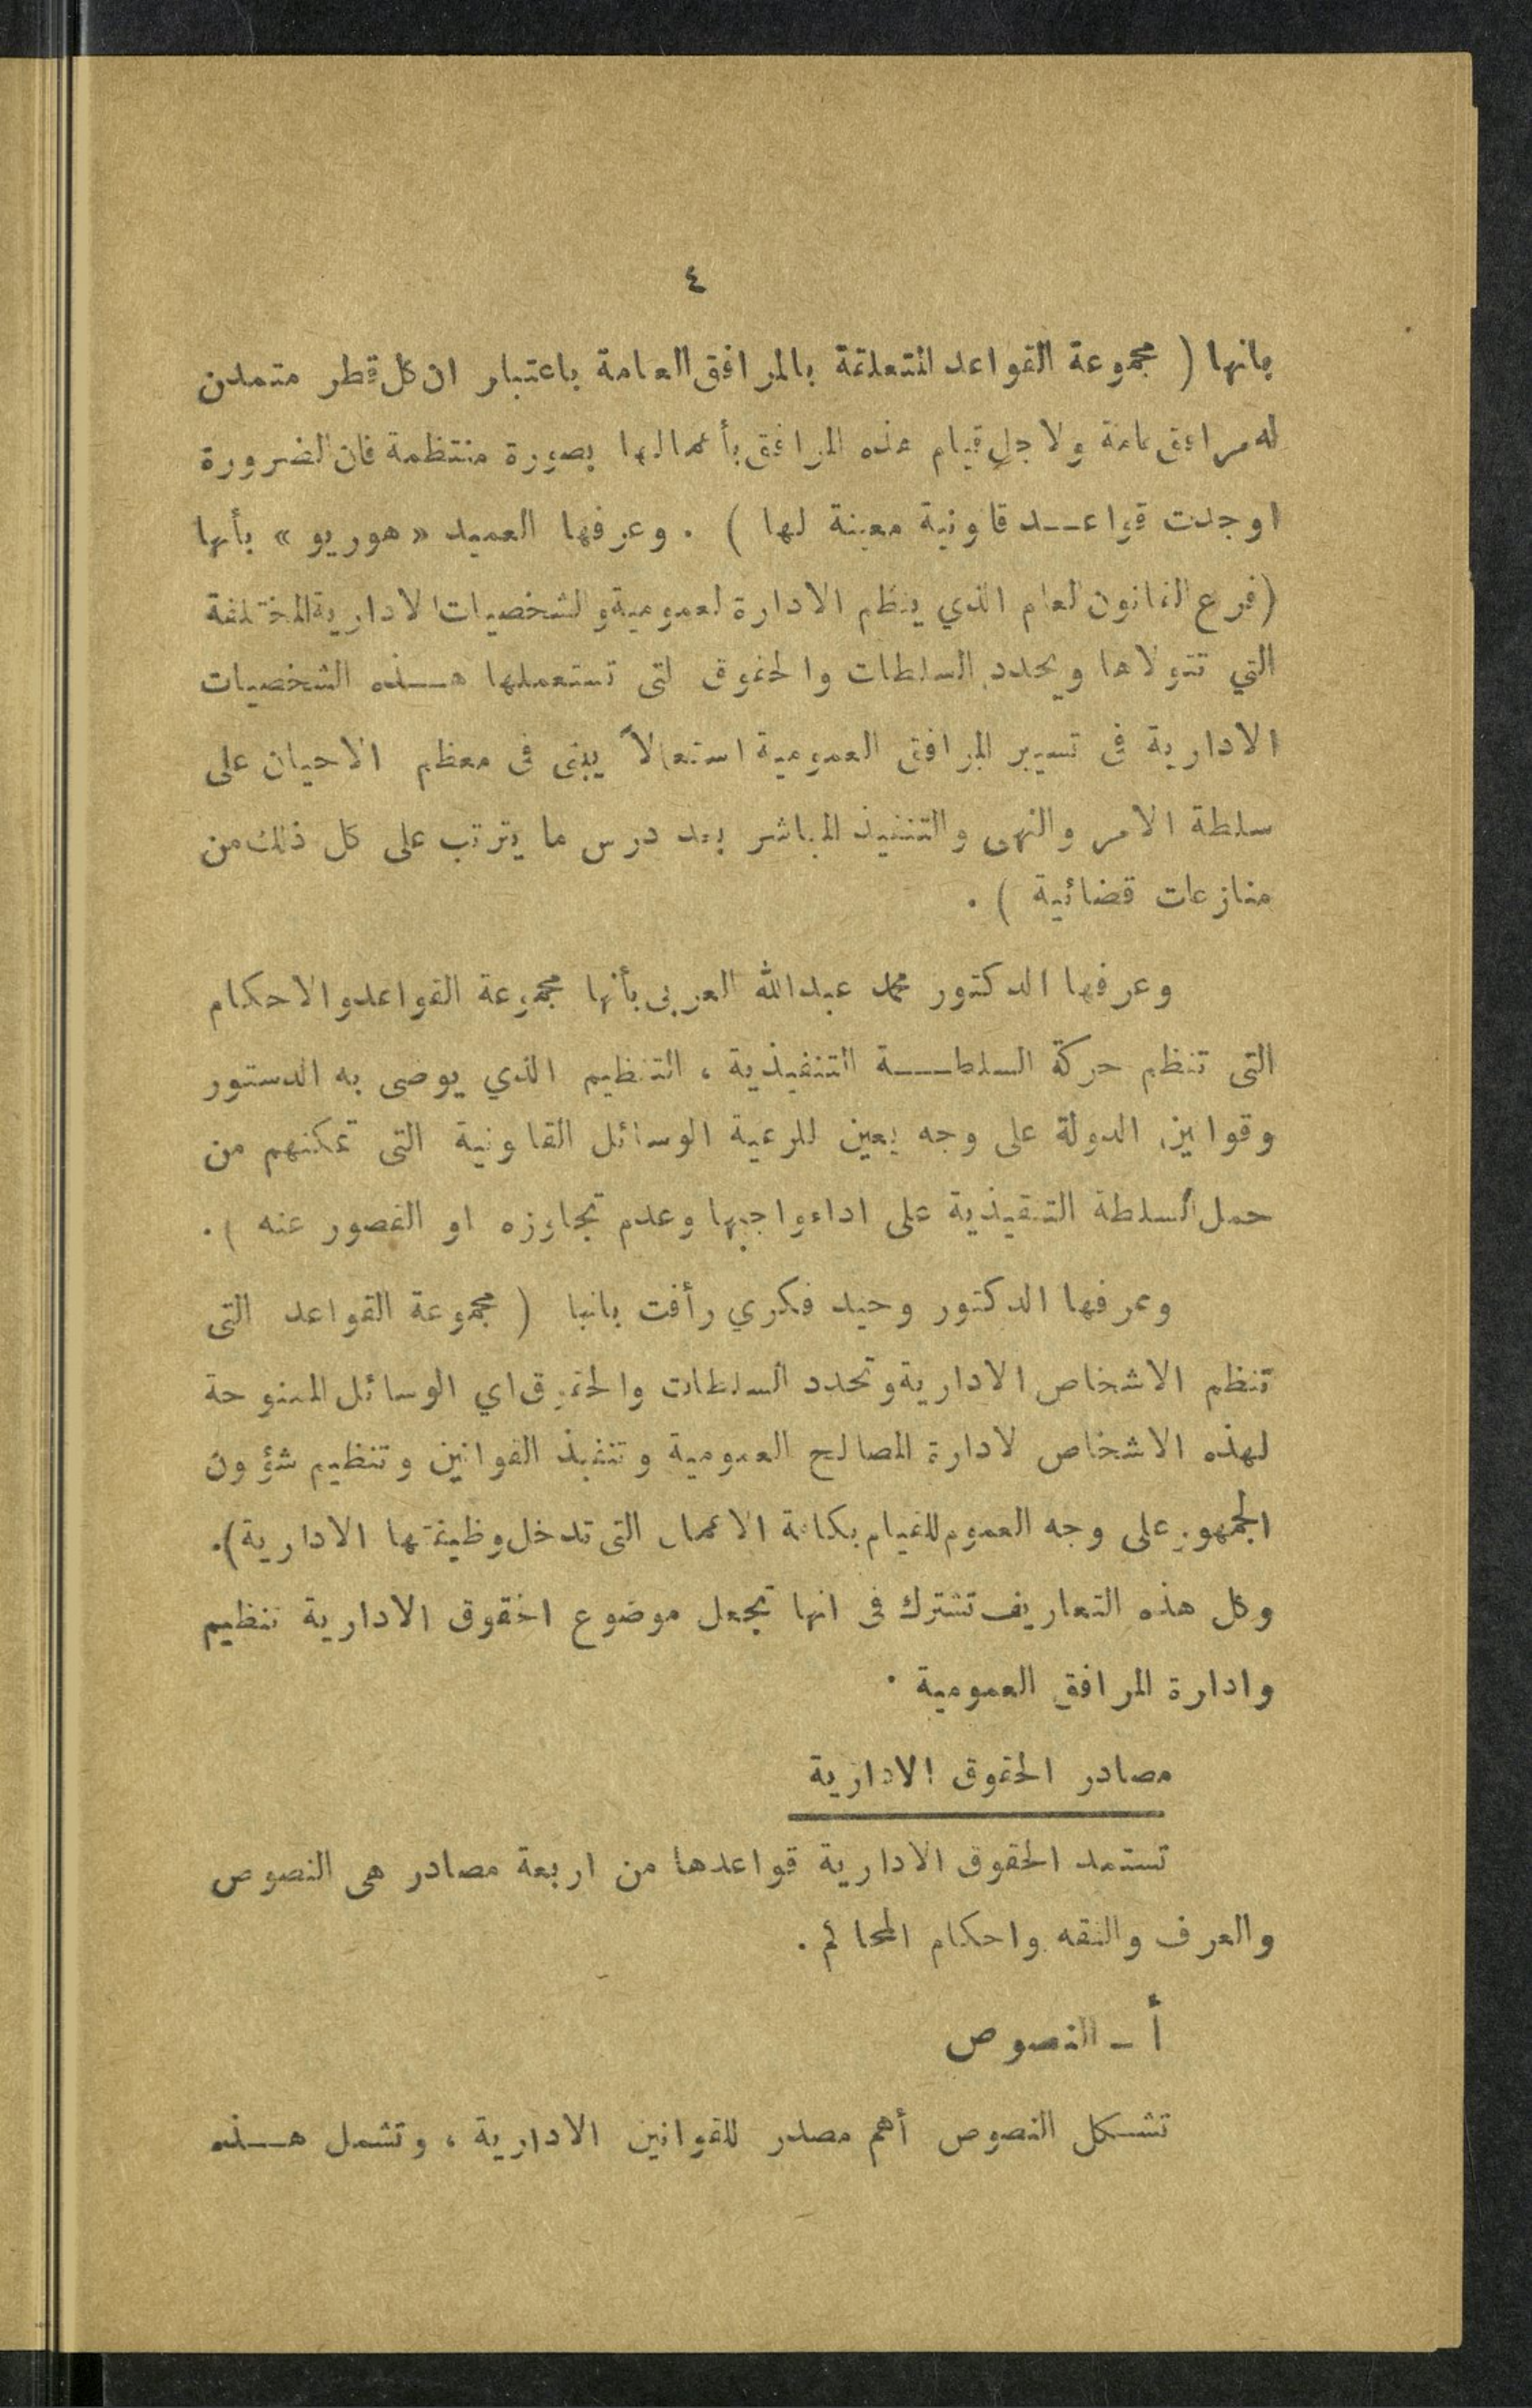 ٤
بانها ( مجموعة القواعد المتعلقة بالمرافق العامة باعتبار ان كل قطر متمدن
له مرافق عامة ولاجل قيام هذه المرافق بأعمالها بصورة منتظمة فان الضرورة
اوجدت قواعـــد قانونية معينة لها ) . وعرفها العميد « هوريو » بأنها
( فرع القانون العام الذي ينظم الادارة العمومية والشخصيات الادارية المختلفة
التي تتولاها ويحدد السلطات والحقوق التى تستعملها هـــذه الشخصيات
الادارية في تسيير المرافق العمومية استعمالاً يبنى فى معظم الاحيان على
سلطة الامر والنهى والتنفيذ المباشر بعد درس ما يترتب على كل ذلك من
منازعات قضائية ) .
وعرفها الدكتور محمد عبدالله العربى بأنها مجموعة القواعد والاحكام
التى تنظم حركة السلطـــة التنفيذية ، التنظيم الذي يوصى به الدستور
وقوانين الدولة على وجه يعين للرعية الوسائل القانونية التى تمكنهم من
حمل السلطة التنفيذية على اداء واجبها وعدم تجاوزه او القصور عنه ) .
وعرفها الدكتور وحيد فكري رأفت بانها ( مجموعة القواعد التى
تنظم الاشخاص الادارية وتحدد السلطات والحقوق اي الوسائل الممنوحة
لهذه الاشخاص لادارة المصالح العمومية وتنفيذ القوانين وتنظيم شؤون
الجمهور على وجه العموم للقيام بكافة الاعمال التى تدخل وظيفتها الادارية ) .
وكل هذه التعاريف تشترك فى انها تجعل موضوع الحقوق الادارية تنظيم
وادارة المرافق العمومية .
مصادر الحقوق الادارية
تستمد الحقوق الادارية قواعدها من اربعة مصادر هى النصوص
والعرف والفقه واحكام المحاكم .
أ ـ النصوص
تشكل النصوص أهم مصدر للقوانين الادارية ، وتشمل هـــذه